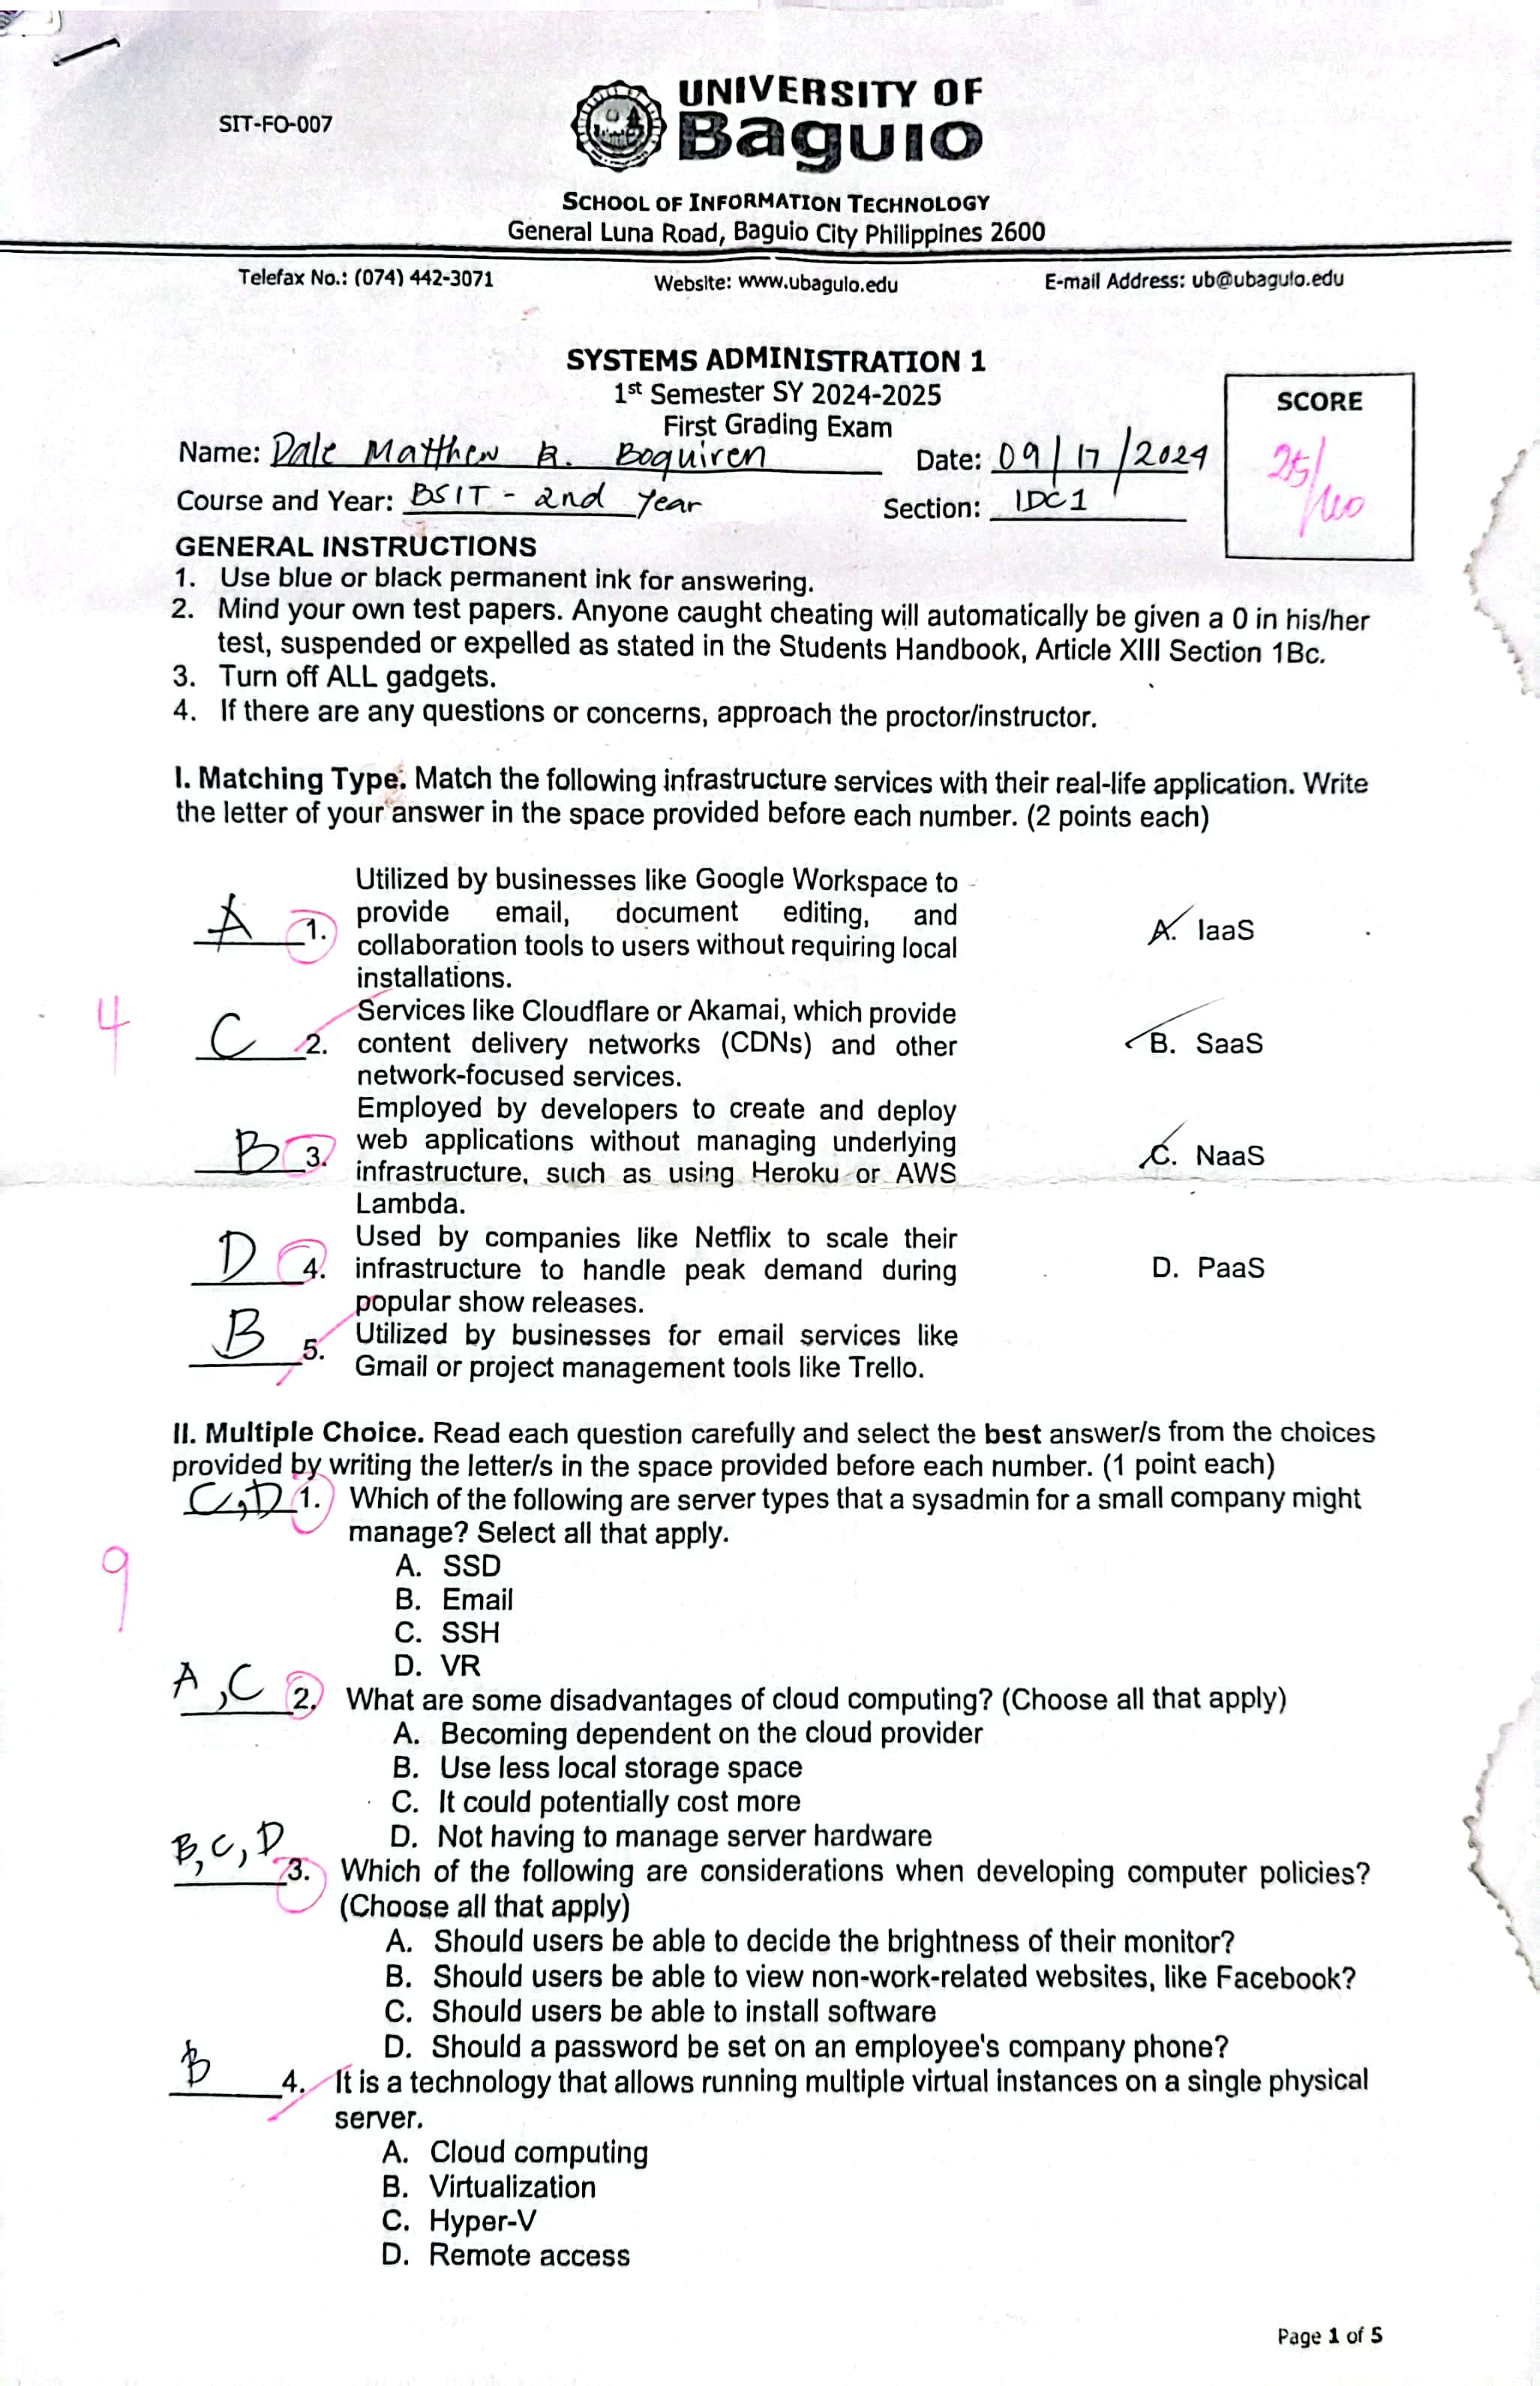 SIT-FO-007
UNIVERSITY OF
Baguio
SCHOOL OF INFORMATION TECHNOLOGY
General Luna Road, Baguio City Philippines 2600
Telefax No.: (074) 442-3071 Website: www.ubaguio.edu E-mail Address: ub@ubaguio.edu
SYSTEMS ADMINISTRATION 1
1st Semester SY 2024-2025
First Grading Exam
SCORE
25/40
Name: Dale Matthew R. Boquiren Date: 09/17/2024
Course and Year: BSIT - 2nd year Section: IDC1
GENERAL INSTRUCTIONS
1. Use blue or black permanent ink for answering.
2. Mind your own test papers. Anyone caught cheating will automatically be given a 0 in his/her
test, suspended or expelled as stated in the Students Handbook, Article XIII Section 1Bc.
3. Turn off ALL gadgets.
4. If there are any questions or concerns, approach the proctor/instructor.
I. Matching Type. Match the following infrastructure services with their real-life application. Write
the letter of your answer in the space provided before each number. (2 points each)
4
A 1. Utilized by businesses like Google Workspace to
provide email, document editing, and
collaboration tools to users without requiring local
installations.
A. IaaS
C 2. Services like Cloudflare or Akamai, which provide
content delivery networks (CDNs) and other
network-focused services.
B. SaaS
B 3. Employed by developers to create and deploy
web applications without managing underlying
infrastructure, such as using Heroku or AWS
Lambda.
C. NaaS
D 4. Used by companies like Netflix to scale their
infrastructure to handle peak demand during
popular show releases.
D. PaaS
B 5. Utilized by businesses for email services like
Gmail or project management tools like Trello.
II. Multiple Choice. Read each question carefully and select the best answer/s from the choices
provided by writing the letter/s in the space provided before each number. (1 point each)
9
C,D 1. Which of the following are server types that a sysadmin for a small company might
manage? Select all that apply.
A. SSD
B. Email
C. SSH
D. VR
A,C 2. What are some disadvantages of cloud computing? (Choose all that apply)
A. Becoming dependent on the cloud provider
B. Use less local storage space
C. It could potentially cost more
D. Not having to manage server hardware
B,C,D 3. Which of the following are considerations when developing computer policies?
(Choose all that apply)
A. Should users be able to decide the brightness of their monitor?
B. Should users be able to view non-work-related websites, like Facebook?
C. Should users be able to install software
D. Should a password be set on an employee's company phone?
B 4. It is a technology that allows running multiple virtual instances on a single physical
server.
A. Cloud computing
B. Virtualization
C. Hyper-V
D. Remote access
Page 1 of 5